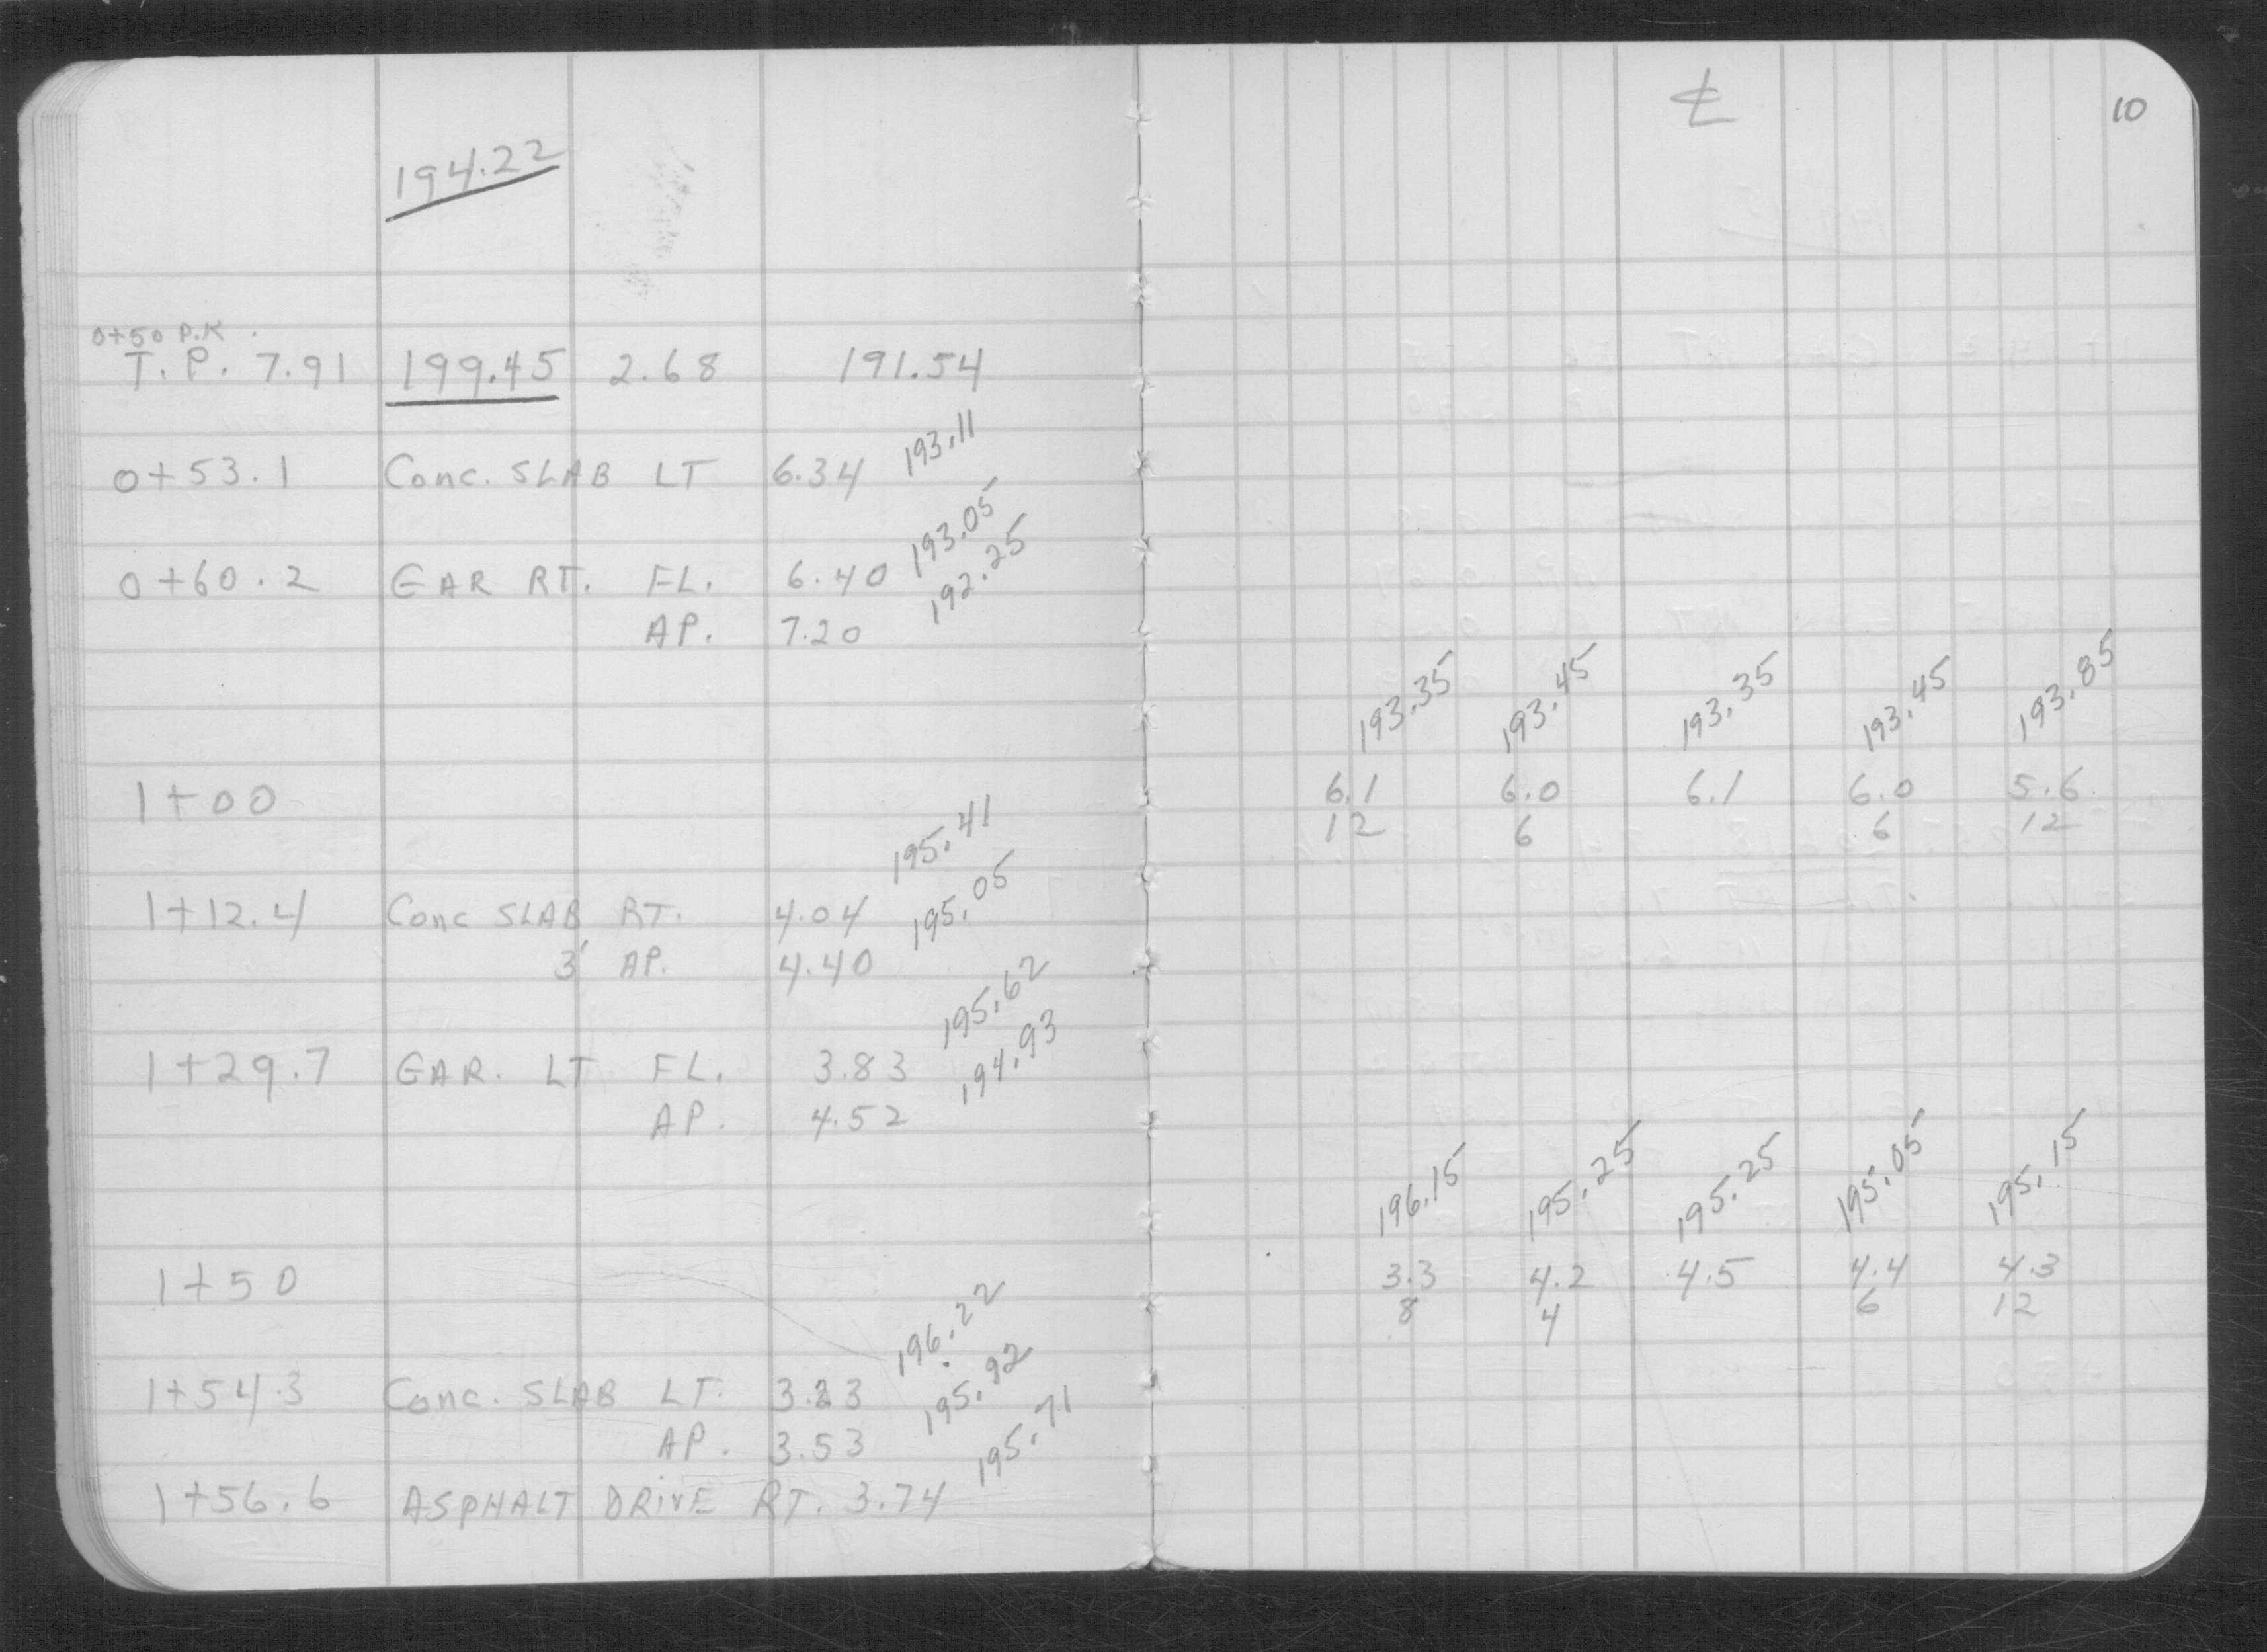 194.22
0+50 P.K.
T.P. 7.91 199.45 2.68 191.54
0+53.1 Conc. SLAB LT 6.34 193.11
0+60.2 GAR RT. FL. 6.40 193.05
AP. 7.20 192.25
1+00
1+12.4 Conc SLAB RT. 4.04 195.41
3' AP. 4.40 195.05
1+29.7 GAR. LT FL. 3.83 195.62
AP. 4.52 194.93
1+50
1+54.3 Conc. SLAB LT. 3.23 196.22
AP. 3.53 195.92
1+56.6 ASPHALT DRIVE RT. 3.74 195.71
℄ 10
193.35 193.45 193.35 193.45 193.85
6.1 6.0 6.1 6.0 5.6
12 6 6 12
196.15 195.25 195.25 195.05 195.15
3.3 4.2 4.5 4.4 4.3
8 4 6 12